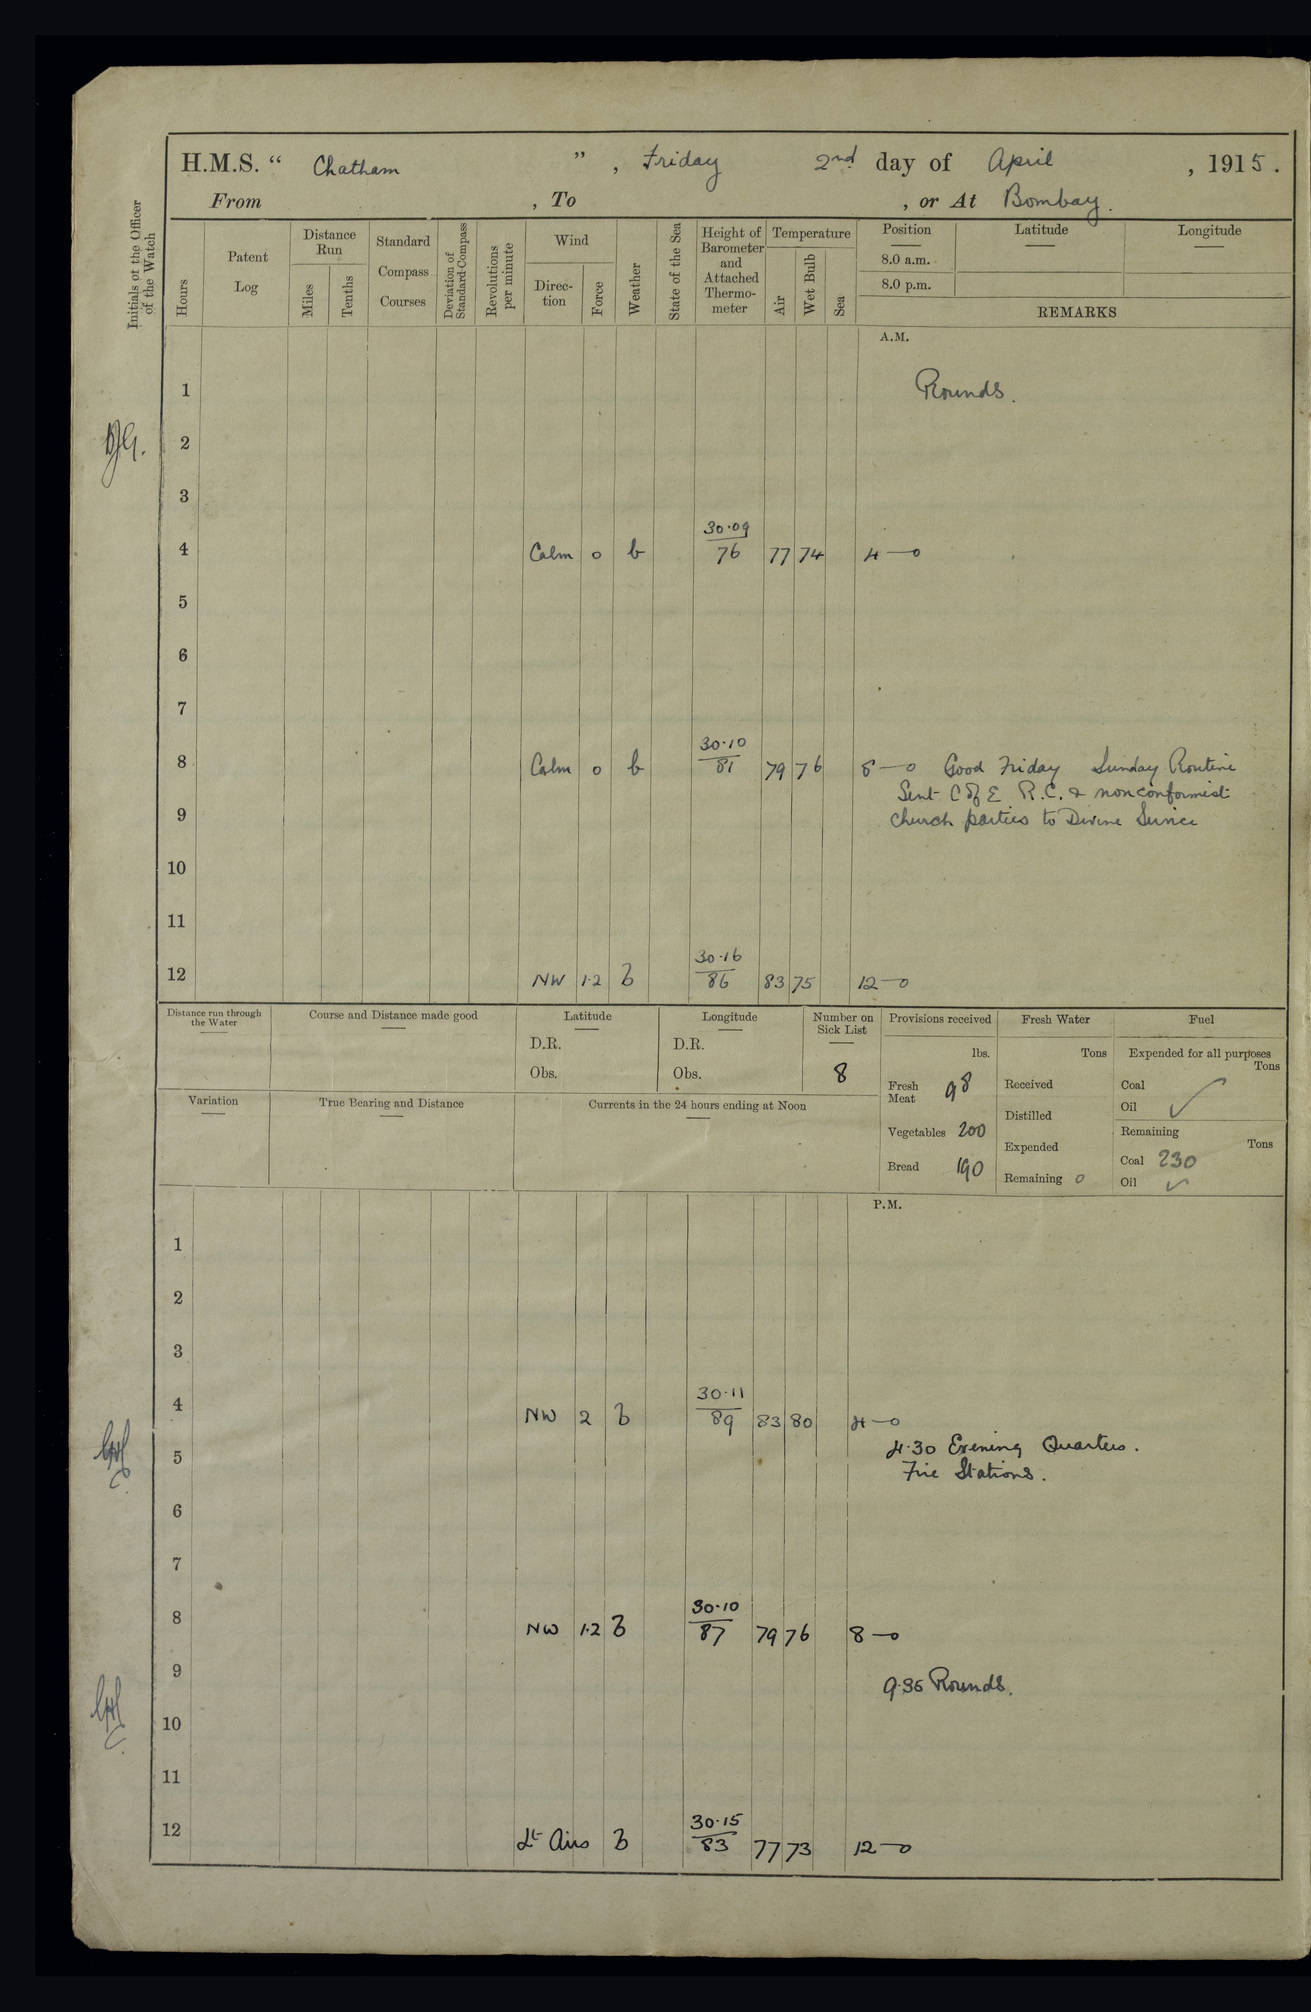 H.M.S. “ Chatham ” , Friday 2nd day of April , 1915.
From , To , or At Bombay.
Initials of the Officer of the Watch
Hours
Patent Log
Distance Run
Miles
Tenths
Standard Compass Courses
Deviation of Standard Compass
Revolutions per minute
Wind
Direc-tion
Force
Weather
State of the Sea
Height of Barometer and Attached Thermo-meter
Temperature
Air
Wet Bulb
Sea
Position
8.0 a.m.
8.0 p.m.
Latitude
Longitude
REMARKS
A.M.
1 Rounds.
2
3
30.09
4 Calm 0 b 76 77 74 4—0
5
6
7
30.10
8 Calm 0 b 81 79 76 8—0 Good Friday Sunday Routine
Sent C of E R.C. & nonconformist
9 church parties to Divine Service
10
11
30.16
12 NW 1.2 b 86 83 75 12—0
Distance run through the Water
Course and Distance made good
Latitude
D.R.
Obs.
Longitude
D.R.
Obs.
Number on Sick List
8
Provisions received
lbs.
Fresh Meat 98
Vegetables 200
Bread 190
Fresh Water
Tons
Received
Distilled
Expended
Remaining 0
Fuel
Expended for all purposes
Tons
Coal
Oil
Remaining
Tons
Coal 230
Oil
Variation
True Bearing and Distance
Currents in the 24 hours ending at Noon
P.M.
1
2
3
30.11
4 NW 2 b 89 83 80 4—0
4.30 Evening Quarters.
5 Fire Stations.
6
7
30.10
8 NW 1.2 b 87 79 76 8—0
9 9.35 Rounds.
10
11
30.15
12 Lt Airs b 83 77 73 12—0